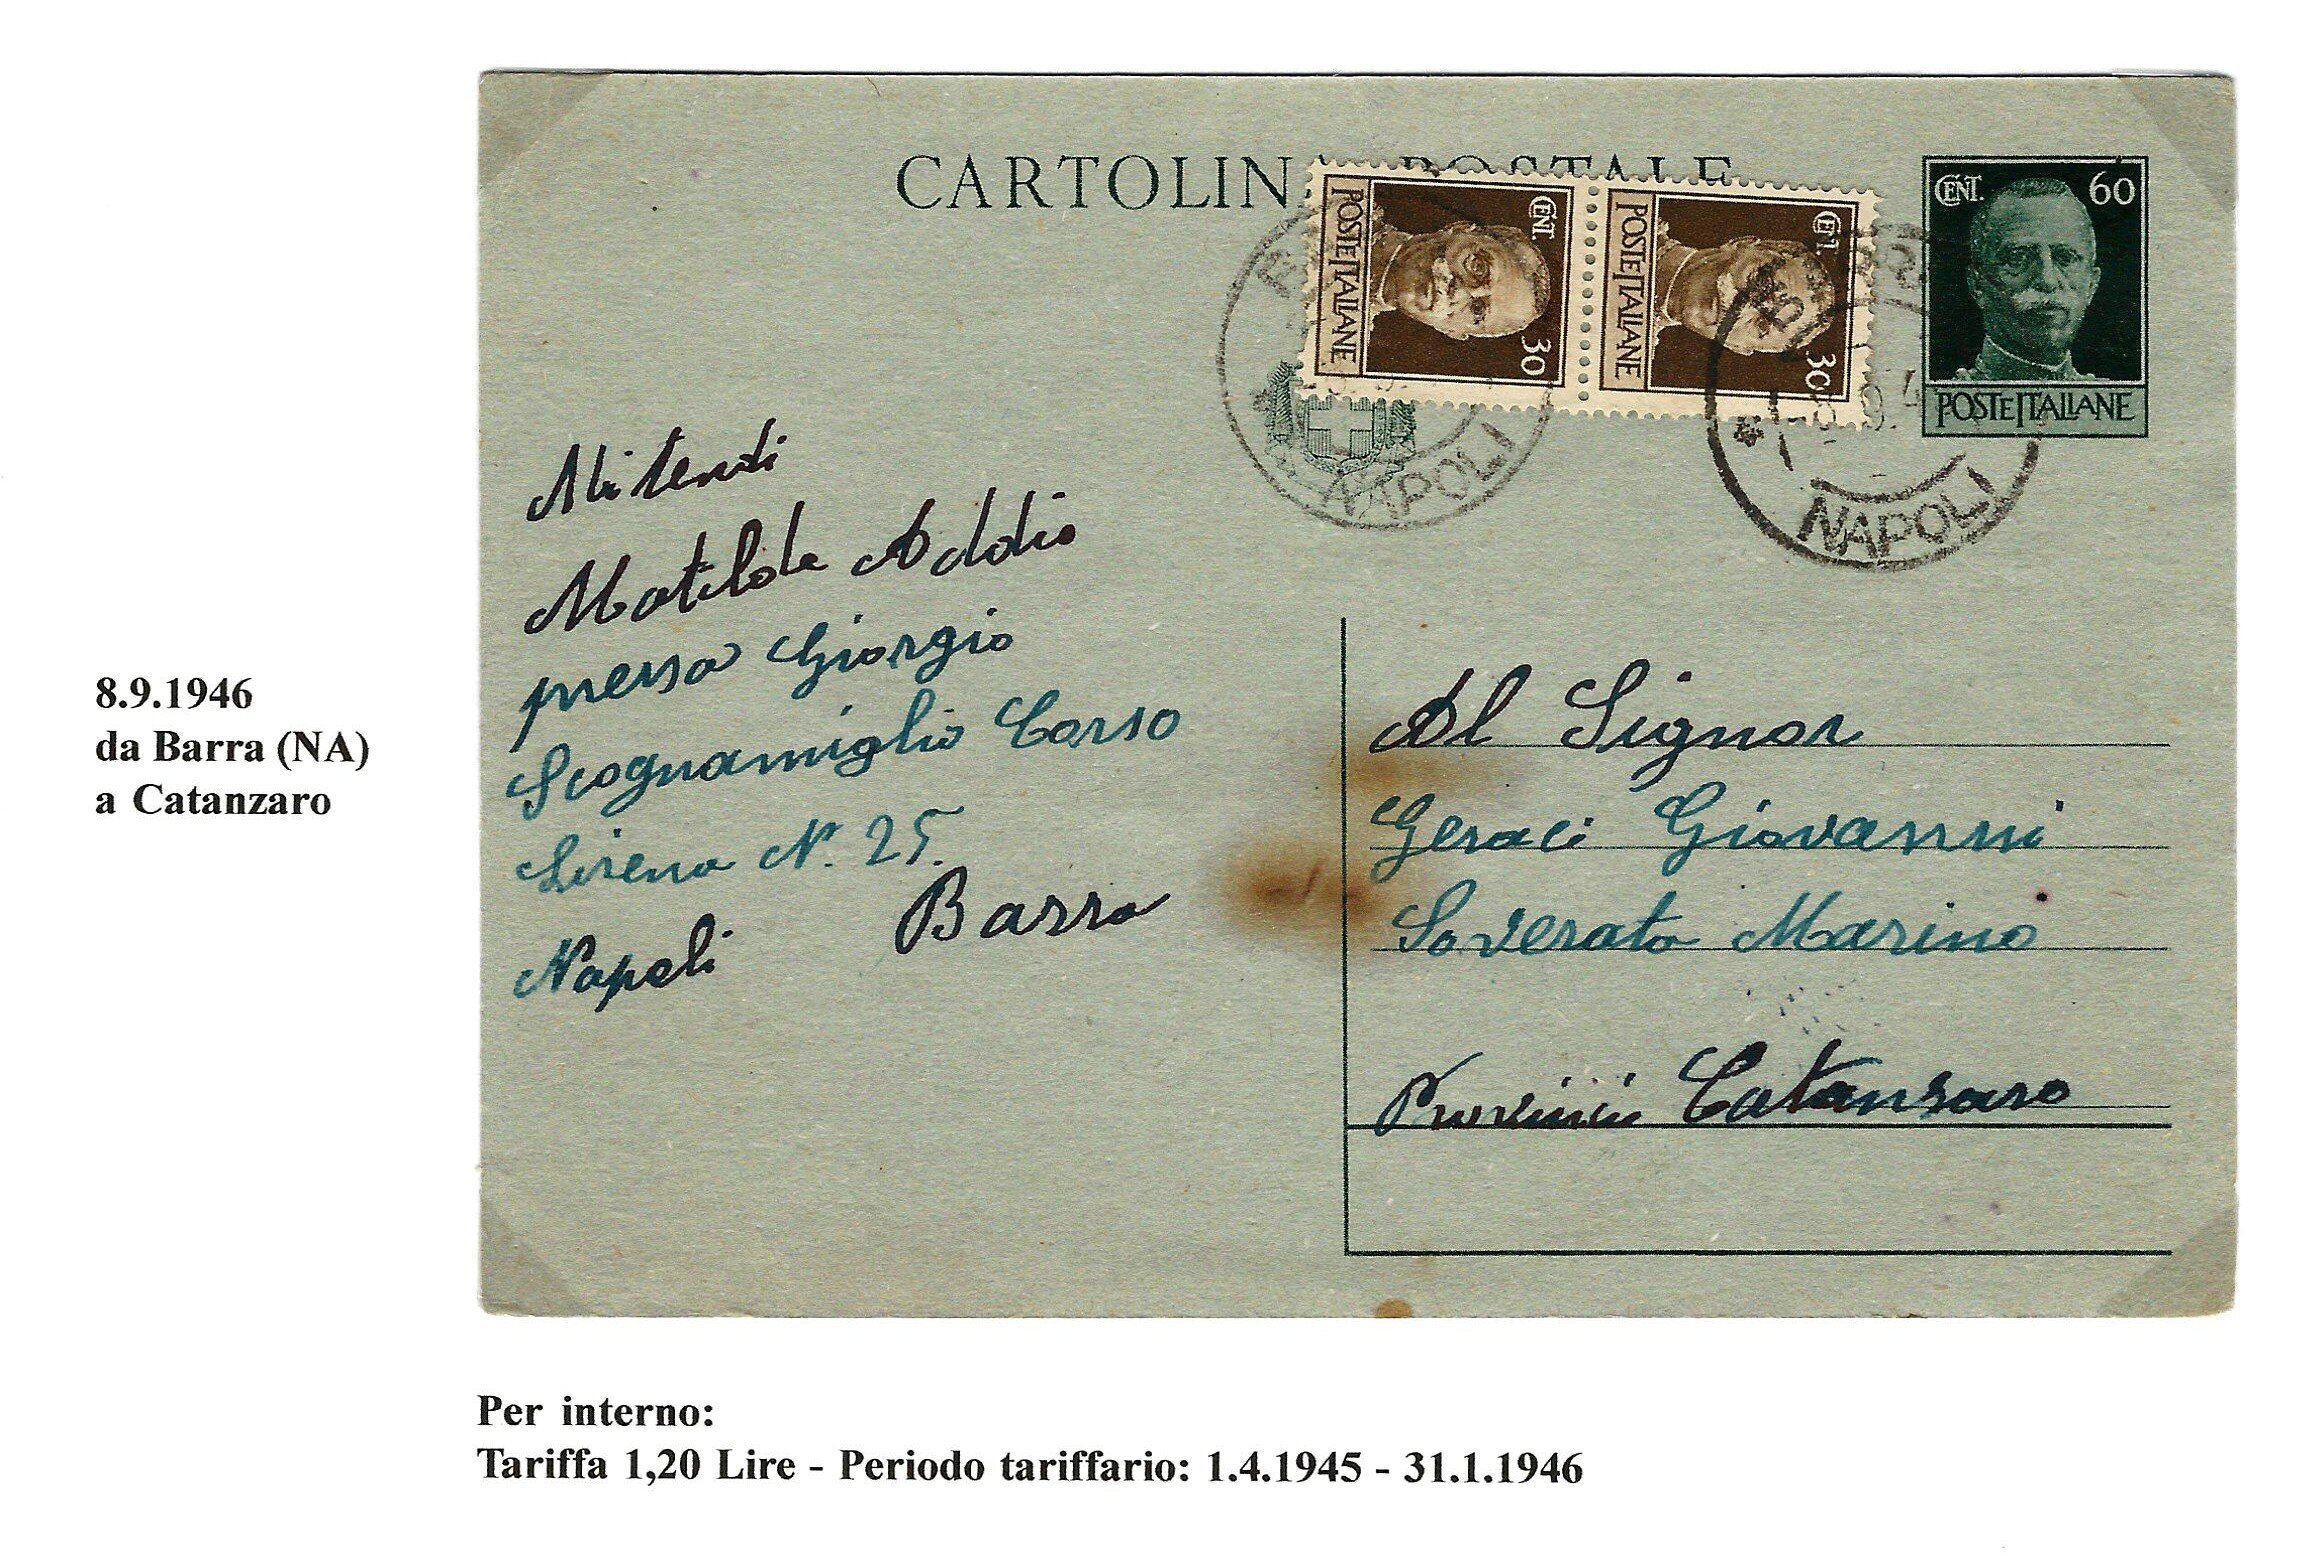 CARTOLINA POSTALE
CENT. 30
POSTE ITALIANE
CENT. 30
POSTE ITALIANE
CENT. 60
POSTE ITALIANE
NAPOLI
NAPOLI
Mitenti
Matilde Addio
presso Giorgio
Scognamiglio Corso
Sirena N. 25.
Napoli Barra
Al Signor
Geraci Giovanni
Soverato Marino
Catanzaro
8.9.1946
da Barra (NA)
a Catanzaro
Per interno:
Tariffa 1,20 Lire - Periodo tariffario: 1.4.1945 - 31.1.1946